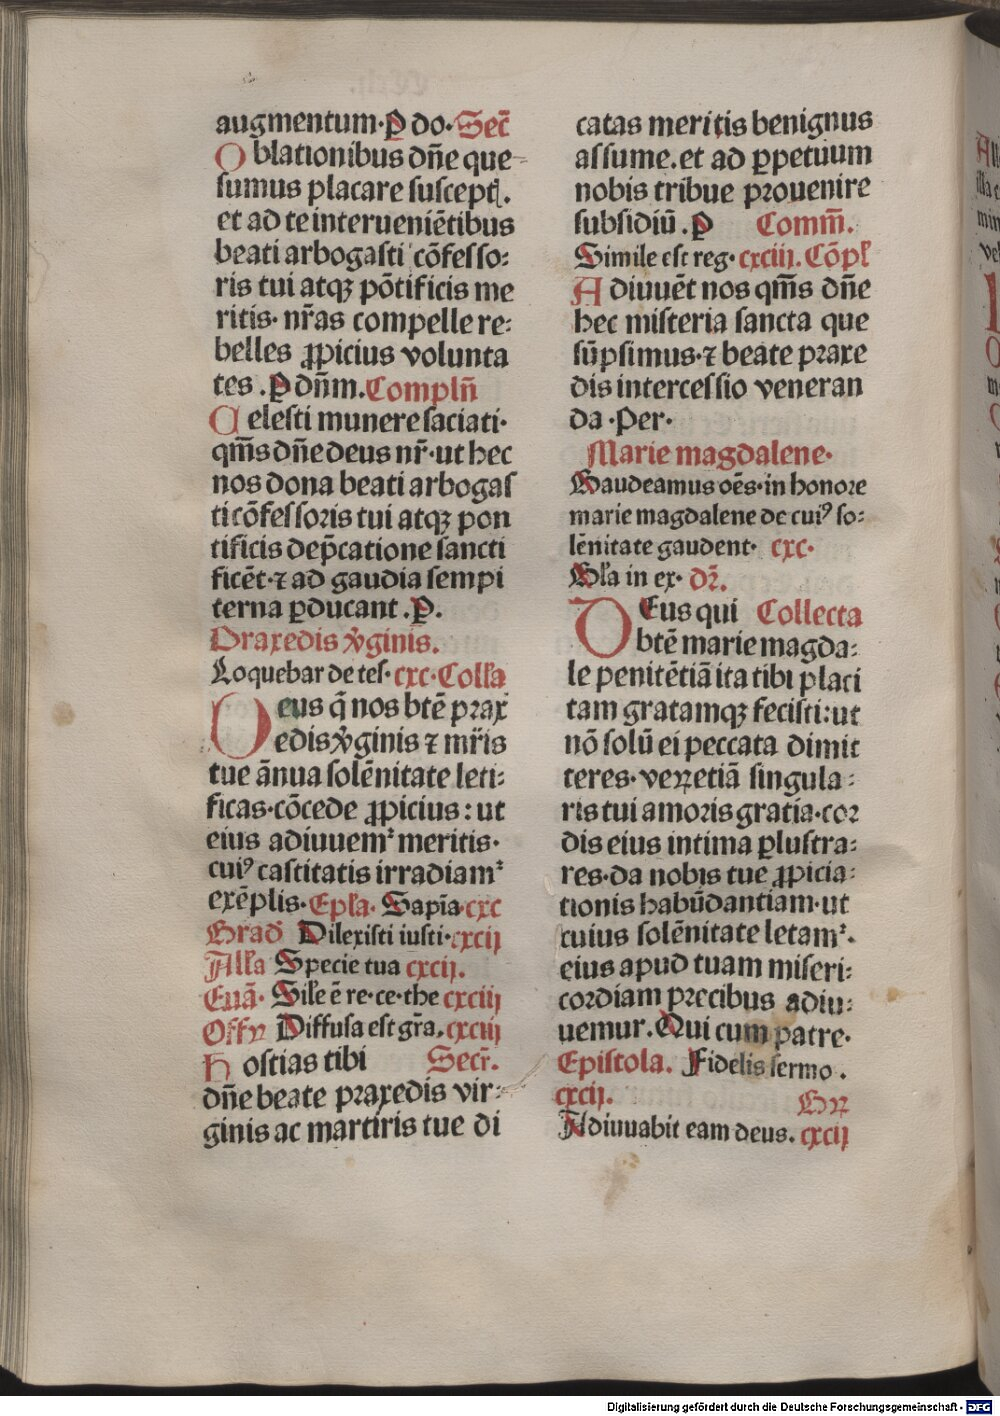 augmentum. P do. Sec̄
Oblationibus dn̄e que-
sumus placare suscept.
et ad te interueniētibus
beati arbogasti cōfesso:
ris tui atqȝ pōtificis me
ritis. nr̄as compelle re:
belles ꝓpicius volunta
tes. P dn̄m. Compln̄
Celesti munere saciati.
qm̄s dn̄e deus nr̄. ut hec
nos dona beati arbogas
ti cōfessoris tui atqȝ pon
tificis dep̄catione sancti
ficēt. ⁊ ad gaudia sempi
terna ꝑducant. P.
Praxedis v̾ginis.
Loquebar de tes. cxc. Coll̄a
Deus q̄ nos btē prax
edis v̾ginis ⁊ mr̄is
tue ānua solēnitate leti:
ficas. cōcede ꝓpicius: ut
eius adiuuem᷑ meritis.
cuiꝰ castitatis irradiam᷑
exēplis. Epl̄a. Sapīa. cxc
Grad̄ Dilexisti iusti. cxcij
All̄a Specie tua cxcij.
Euā. Sil̄e ē re. ce. the cxciij
Offꝝ Diffusa est gr̄a. cxciij
Hostias tibi Secr̄.
dn̄e beate praxedis vir-
ginis ac martiris tue di
catas meritis benignus
assume. et ad ꝑpetuum
nobis tribue prouenire
subsidiū. P Comm̄.
Simile est reg. cxciij. Cōpl̄
Adiuuēt nos qm̄s dn̄e
hec misteria sancta que
sūpsimus. ⁊ beate praxe
dis intercessio veneran
da. Per.
Marie magdalene.
Gaudeamus oēs. in honore
marie magdalene de cuiꝰ so:
lēnitate gaudent. cxc.
Gl̄a in ex. dr̄.
DEus qui Collecta
btē marie magda:
le penitētiā ita tibi placi
tam gratamqȝ fecisti: ut
nō solū ei peccata dimit
teres. veꝝetiā singula:
ris tui amoris gratia. cor
dis eius intima ꝑlustra:
res. da nobis tue ꝓpicia:
tionis habūdantiam. ut
cuius solēnitate letam᷑.
eius apud tuam miseri:
cordiam precibus adiu:
uemur. Qui cum patre.
Epistola. Fidelis sermo.
cxcij. Gꝝ
Adiuuabit eam deus. cxcij
Digitalisierung gefördert durch die Deutsche Forschungsgemeinschaft - DFG